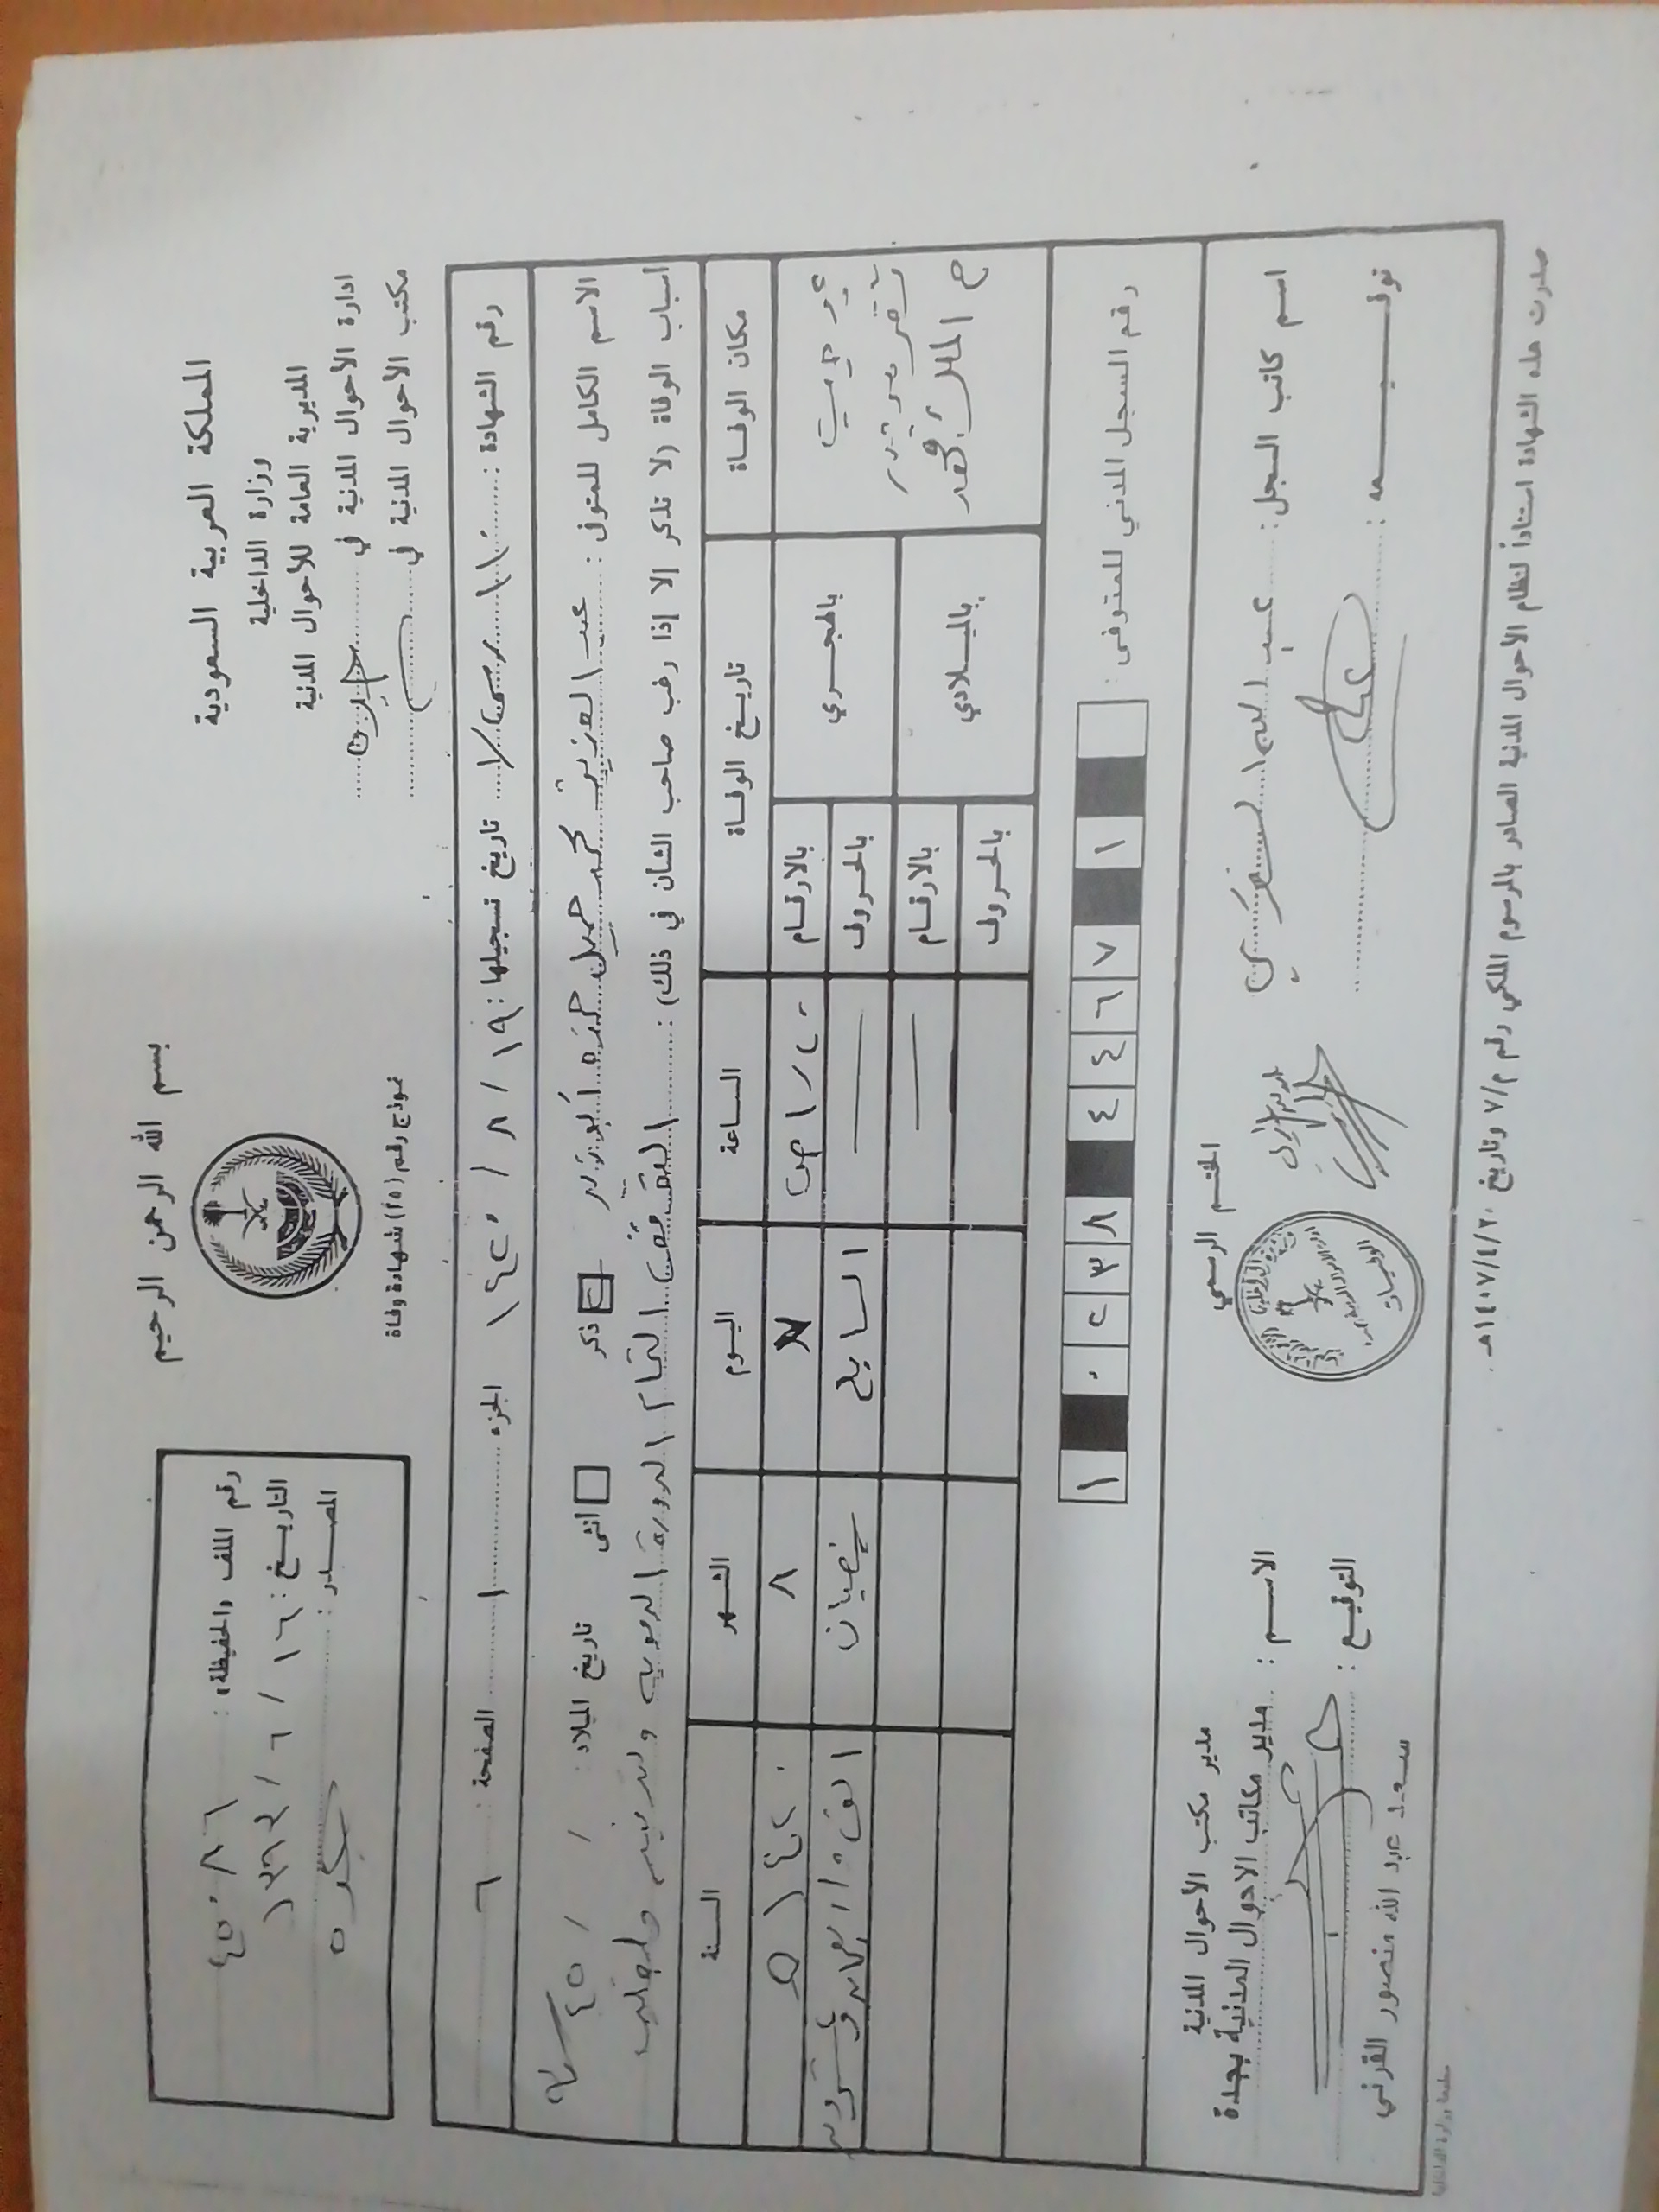 بسم الله الرحمن الرحيم
المملكة العربية السعودية
وزارة الداخلية
المديرية العامة للأحوال المدنية
ادارة الأحوال المدنية في جده
مكتب الأحوال المدنية في
نموذج رقم (٢٥) شهادة وفاة
رقم الملف والحفيظة : ٤٥٠٨٦
التاريخ : ١٦ / ٦ / ١٣٩٢
المصدر : جده
رقم الشهادة : تاريخ تسجيلها : ١٩ / ٨ / ١٤٢٠ الجزء ١ الصفحة : ٦
الاسم الكامل للمتوفى : عبد العزيز محمد جميل حمزه ذكر انثى تاريخ الميلاد : / / ٤٥
اسباب الوفاة (لا تذكر إلا إذا رغب صاحب الشأن في ذلك) : التام الدورة الدمويه والتنفسيه
مكان الوفاة تاريخ الوفاة الساعة اليوم الشهر السنة
بالهجري بالارقام ٨ ١٤٢٠
بالحروف السابع شعبان الف واربعمائه وعشرون
بالميلادي بالارقام
بالحروف
الملك فهد
رقم السجل المدني للمتوفى : ١ ٧ ٦ ٤ ٤ ٨ ٣ ٢ ٠ ١
اسم كاتب السجل :
توقيعه :
الختم الرسمي
مدير مكتب الأحوال المدنية
الاسم : مدير مكاتب الاحوال المدنية بجدة
التوقيع :
سعد عبد الله منصور القرني
صدرت هذه الشهادة استناداً لنظام الأحوال المدنية الصادر بالمرسوم الملكي رقم م/٧ وتاريخ ١٤٠٧/٤/٢٠هـ.